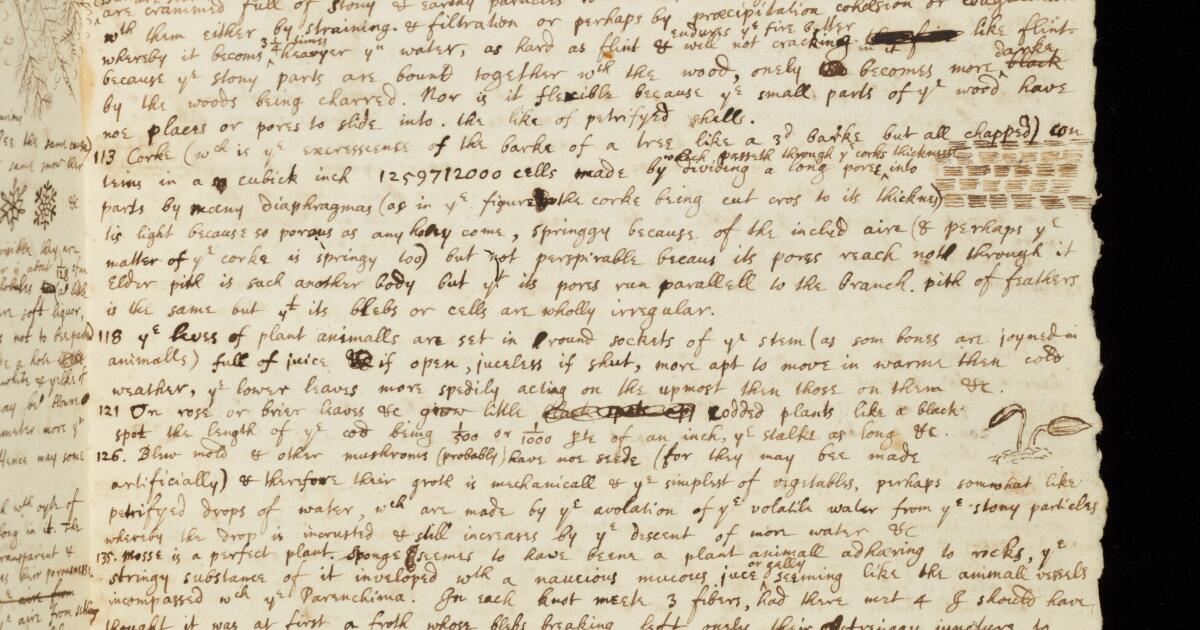 are crammed full of stony & earthy particles
wth them either by straining & filtration or perhaps by præcipitation cohæsion or
whereby it becoms 3 1/4 times heavyer yn water, as hard as flint & endures ye fire better well not cracking in it like flint.
because ye stony parts are bound together wth the wood, onely becomes more darke black
by the woods being charred. Nor is it flexible because ye small parts of ye wood have
noe places or pores to slide into. the like of petrifyed shells.
113 Corke (wch is ye excressense of the barke of a tree like a 3d barke but all chapped) con
teins in a cubick inch 1259712000 cells made by dividing a long pores wch passeth through ye corks thickness into
parts by many diaphragmas (as in ye figure the corke being cut cros to its thicknes)
tis light because so porous as any hony come, springgy because of the includ aire (& perhaps ye
matter of ye corke is springy too) but not perspirable becaus its pores reach not through it
Elder pith is such another body but yt its pores run parallell to the branch. pith of feathers
is the same but yt its blebs or cells are wholly irregular.
118 ye leves of plant animalls are set in round sockets of ye stem (as som bones are joyned in
animalls) full of juice if open, juceless if shut, more apt to move in warme then cold
weather, ye lower leaves more spedily acting on the upmost then those on them &c.
121 On rose or brier leaves &c grow little codded plants like a black
spot the length of ye cod being 1/500 or 1/1000 pte of an inch, ye stalks as long &c.
126. Blew mold & other mushroms (probably) have noe seede (for they may bee made
artificially) & therefore their groth is mechanicall & ye simplest of vegetables, perhaps somwhat like
petrifyed drops of water, wch are made by ye avolation of ye volatile water from ye stony particles
whereby the drop is incrusted & still increases by ye descent of more water &c
135. Mosse is a perfect plant. sponge seemes to have beene a plant animall adhæring to rocks, ye
stringy substance of it inveloped wth a naucious mucous juce or gelly seeming like the animall vessels
incompassed wth ye Parenchima. In each knot meete 3 fibers, had there met 4 I should have
thought it was at first a froth whose blebs breaking left onely their stringy juncture to
See the same cause
same mor
&
visible they are
soft liquor,
s not to bee
a hole
white & yelke of
may be blowne
Hence may some
wth oyle of
long in it. The
transparent &
aire from